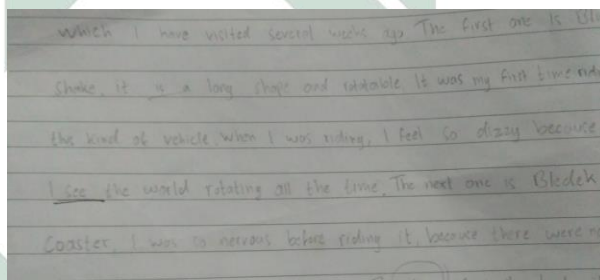 which I have visited several weeks ago. The first one is
Shake, it is a long shape and rotatable. It was my first time
this kind of vehicle. When I was riding, I feel so dizzy because
I see the world rotating all the time. The next one is Bledek
Coaster, I was so nervous before riding it, because there were